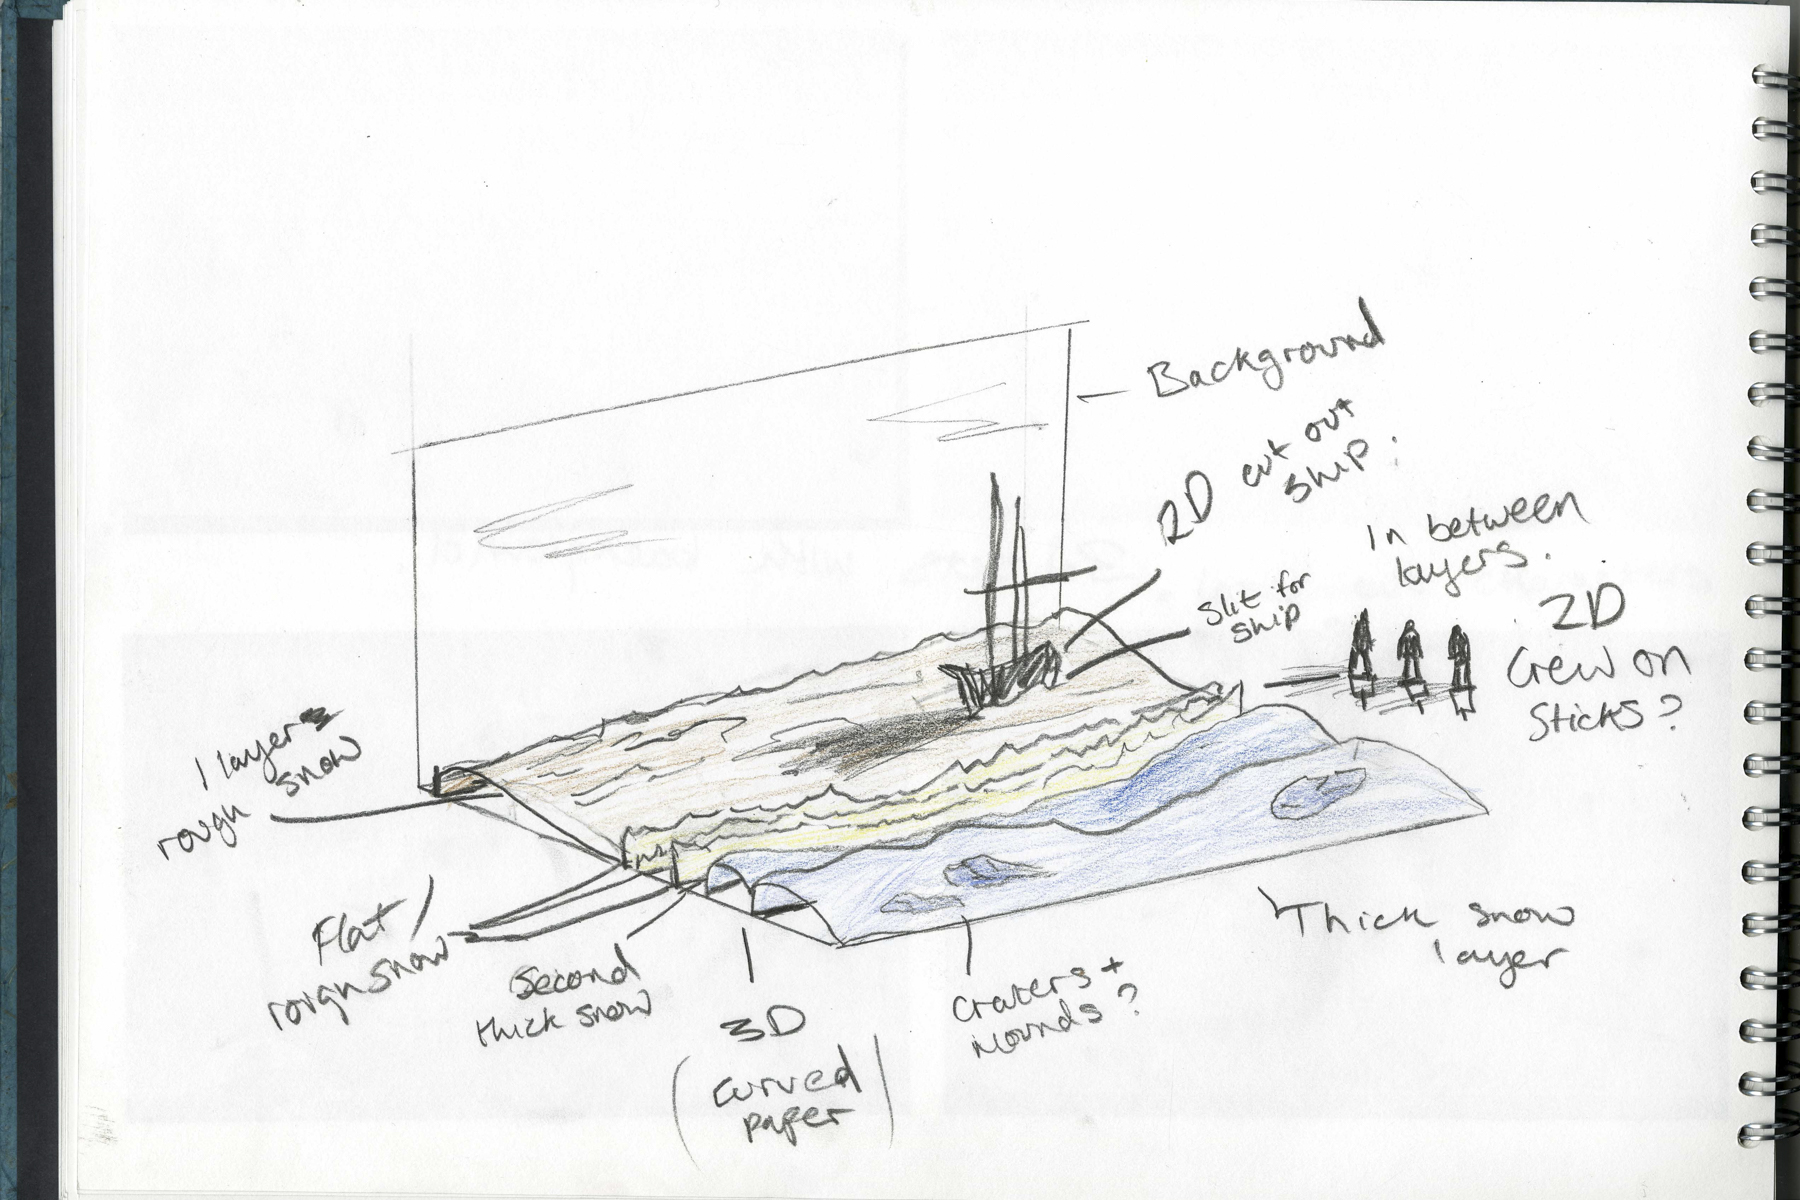 Background
2D cut out
ship.
In between
layers.
Slit for
ship
2D
Crew on
Sticks?
1 layers
rough snow
Flat/
rough snow
Second
thick snow
3D
(curved
paper)
Craters +
Mounds?
Thick snow
layer